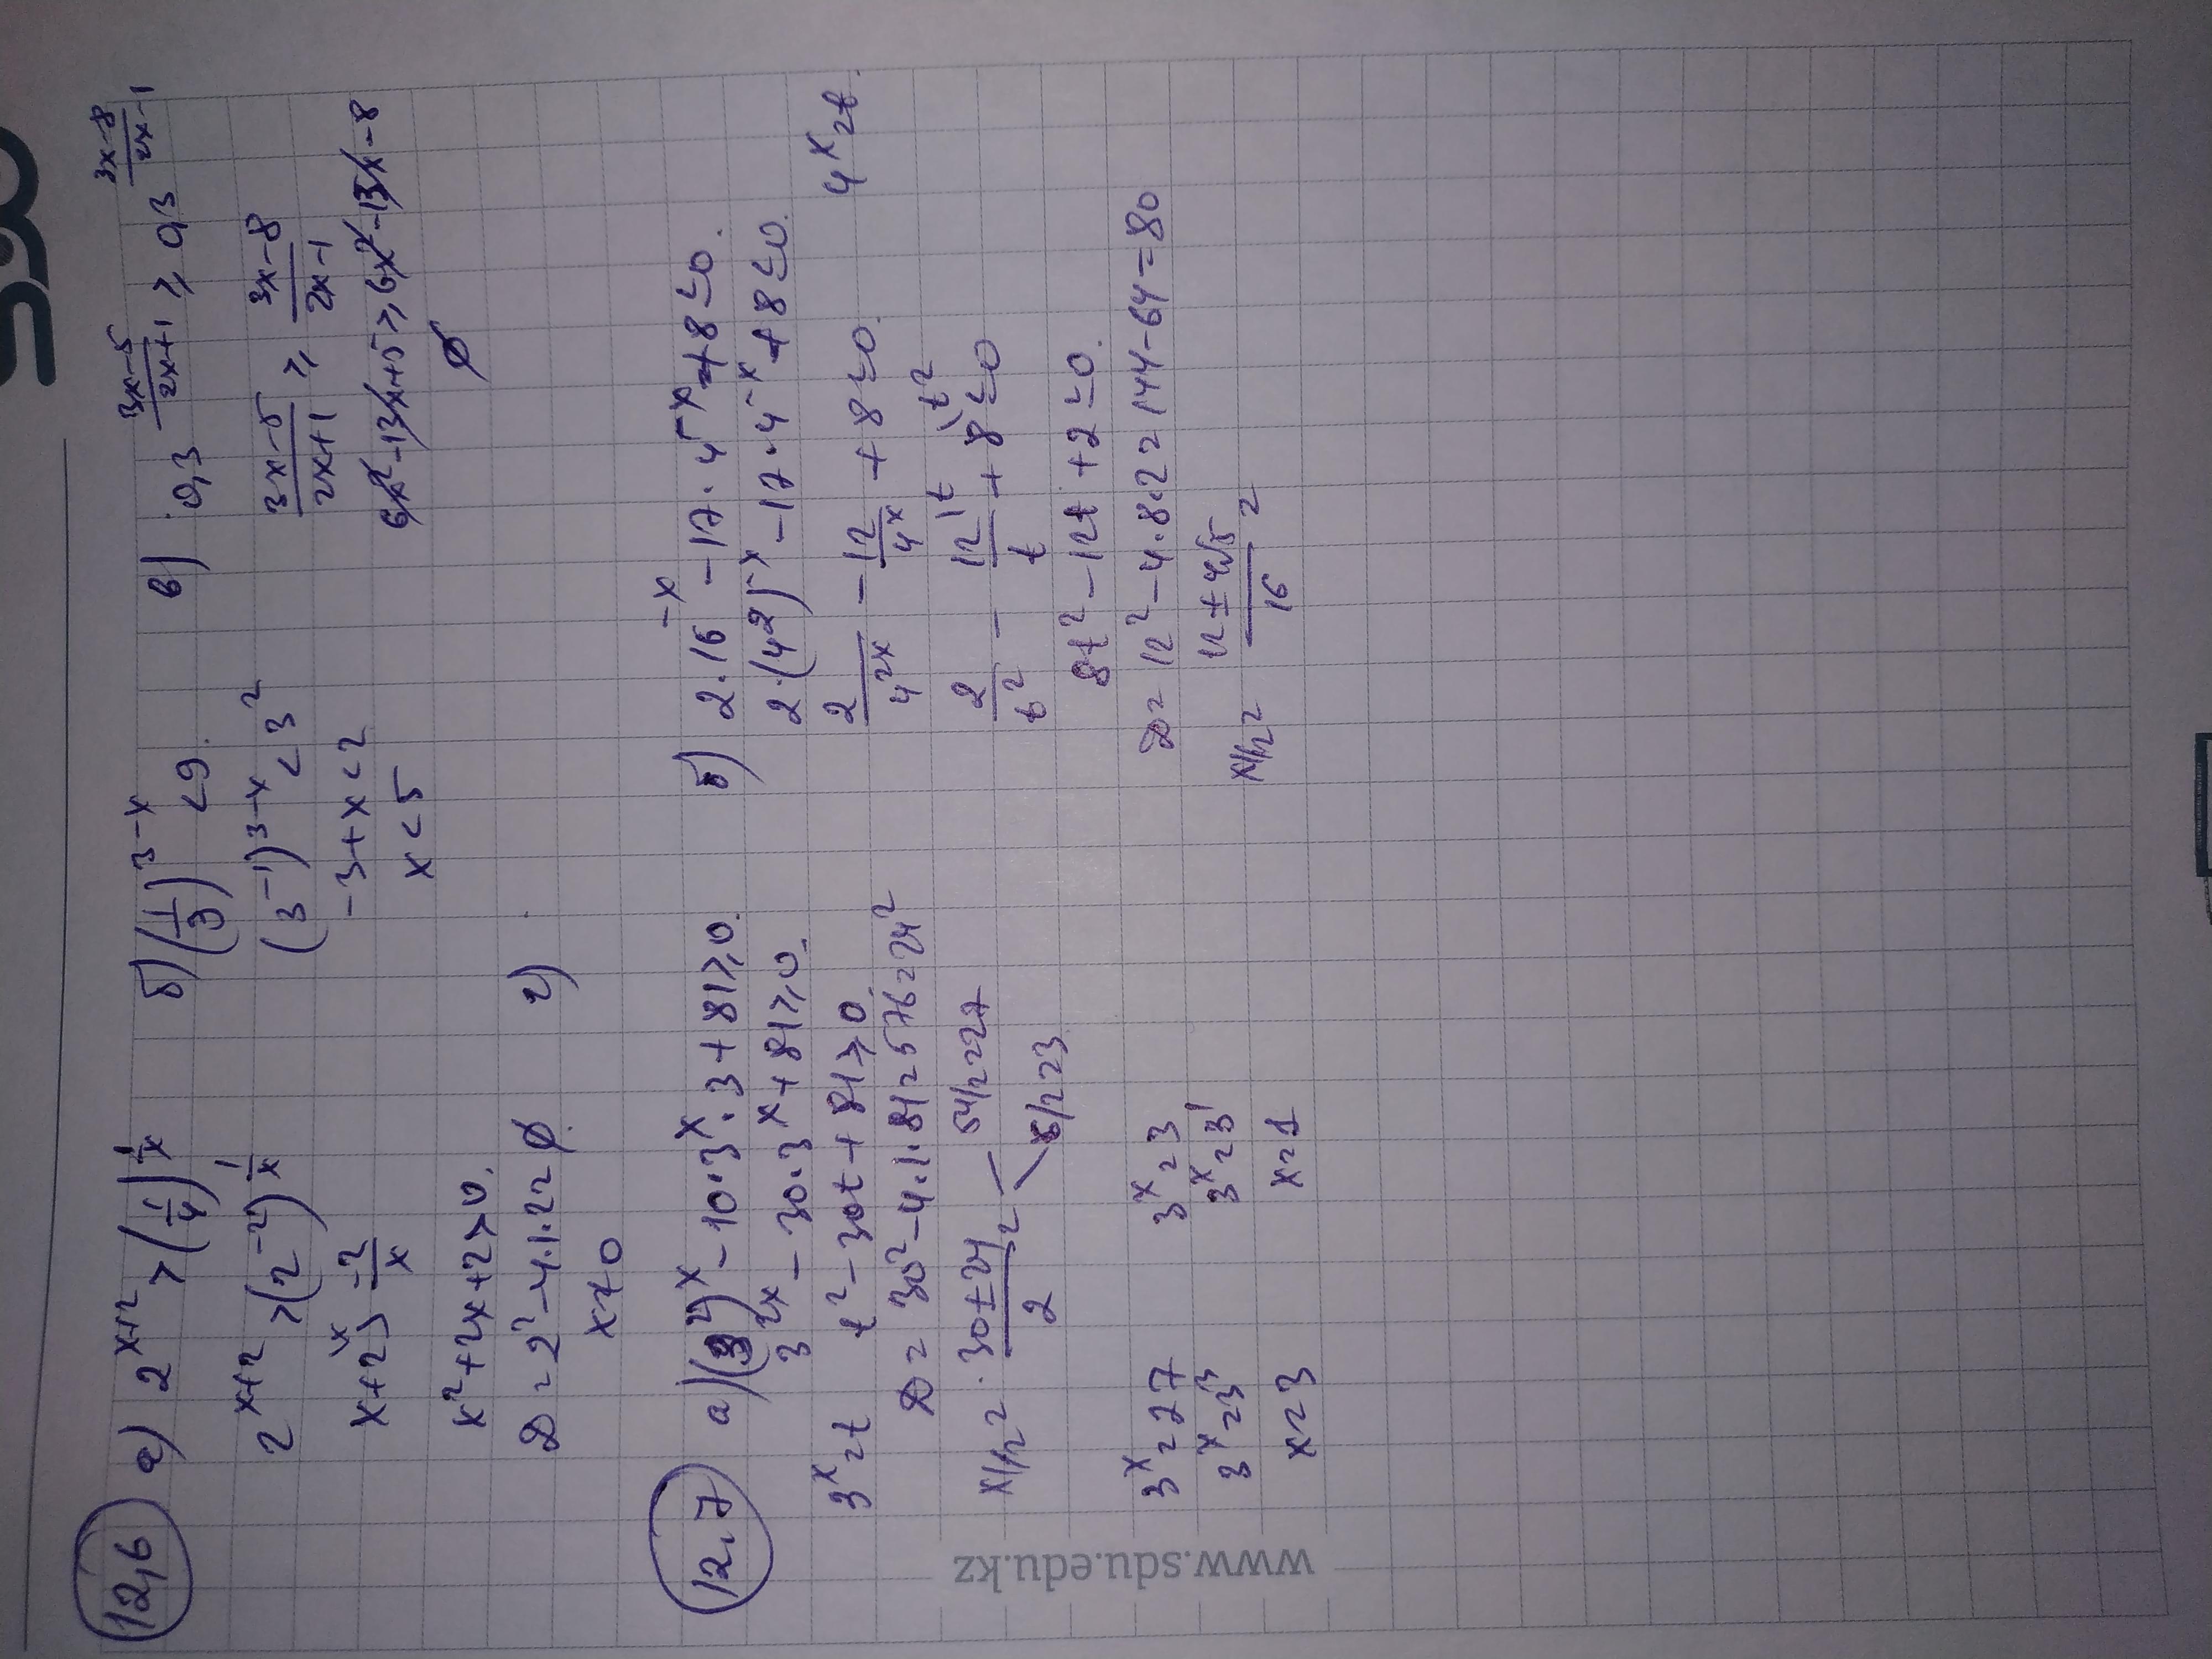 12,6 а) 2^{x+2} > (1/4)^{1/x}
2^{x+2} > (2^{-2})^{1/x}
x+2^{\x} > -2/x
x^2+2x+2>0.
D = 2^2-4.1.2= ∅.
x≠0
б) (1/3)^{3-x} <9.
(3^{-1})^{3-x} < 3^2
-3+x<2
x<5
в) 0,3^{(3x-5)/(2x+1)} ≥ 0,3^{(3x-8)/(2x-1)}
(3x-5)/(2x+1) ≥ (3x-8)/(2x-1)
6x^2-13x+5 ≥ 6x^2-13x-8
∅
г)
12.7 а) (3^2)^x -10·3^x·3+81≥0.
3^{2x} -30·3^x+81≥0.
3^x=t t^2-30t+81≥0.
D= 30^2-4.1.81=576=24^2
x1/2= (30±24)/2 = 54/2=27
6/2=3
3^x=27 3^x=3
3^x=3^3 3^x=3^1
x=3 x=1
б) 2·16^{-x} -17·4^{-x}+8≤0.
2·(4^2)^{-x} -17·4^{-x}+8≤0.
2/4^{2x} - 12/4^x +8≤0. 4^x=t.
2/t^2 - 12\t/t + 8\t^2 ≤0
8t^2-12t+2≤0.
D= 12^2-4.8.2=144-64=80
x1/2= (12±4√5)/16 =
www.sdu.edu.kz